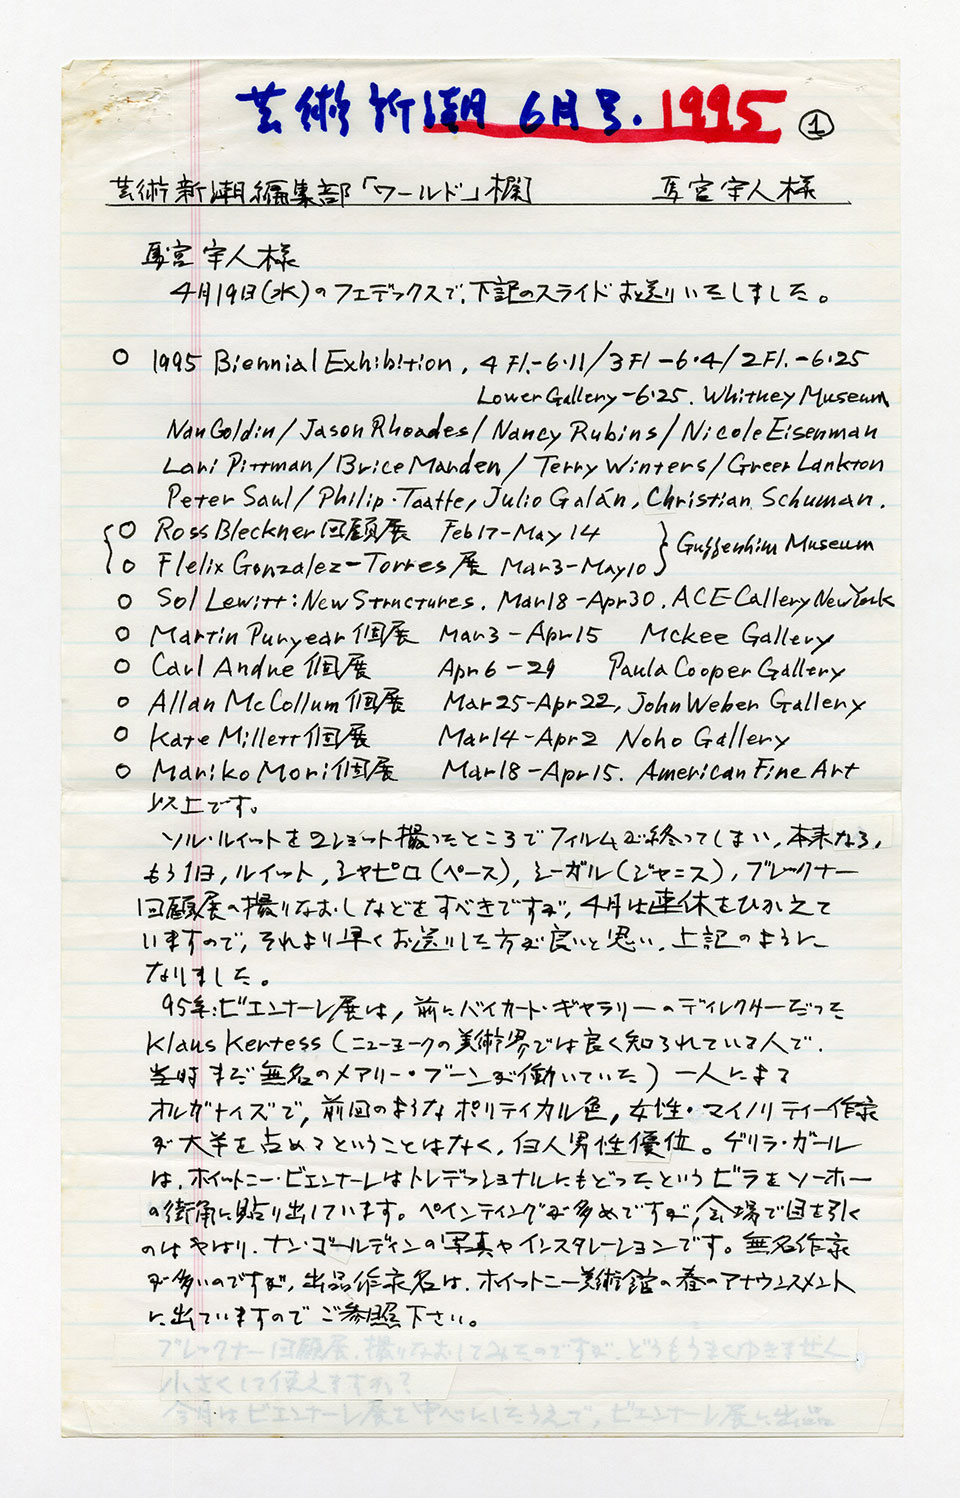 芸術新潮 6月号. 1995 ①
芸術新潮編集部「ワールド」欄 馬宮宇人様
馬宮宇人様
4月19日(水)のフェデックスで、下記のスライドお送りいたしました。
○ 1995 Biennial Exhibition, 4 Fl.-6.11/3Fl-6.4/2Fl.-6.25
Lower Gallery-6.25. Whitney Museum
Nan Goldin/Jason Rhoades/Nancy Rubins/Nicole Eisenman
Lari Pittman/Brice Marden/Terry Winters/Greer Lankton
Peter Saul/Philip.Taaffe, Julio Galán, Christian Schuman.
○ Ross Bleckner 回顧展 Feb17-May 14
○ Flelix Gonzalez-Torres 展 Mar3-May10 Guffenhim Museum
○ Sol Lewitt: New Structures. Mar18-Apr30. ACE Callery New York
○ Martin Puryear 個展 Mar3-Apr15 Mckee Gallery
○ Carl Andre 個展 Apr6-29 Paula Cooper Gallery
○ Allan McCollum 個展 Mar25-Apr22, John Weber Gallery
○ Kate Millett 個展 Mar14-Apr2 Noho Gallery
○ Mariko Mori 個展 Mar18-Apr15. American Fine Art
以上です。
ソル・ルイットを2ショット撮ったところでフィルムが終ってしまい、本来なら、
もう1日、ルイット、シャピロ(ペース)、シーガル(ジャニス)、ブレックナー
回顧展の撮りなおしなどをすべきですが、4月は連休をひかえて
いますので、それより早くお送りした方が良いと思い、上記のように
なりました。
95年:ビエンナーレ展は、前にバイカート・ギャラリーのディレクターだった
Klaus Kertess (ニューヨークの美術界では良く知られている人で.
当時まだ無名のメアリー・ブーンが働いていた) 一人による
オルガナイズで、前回のようなポリティカル色、女性・マイノリティー作家
が大半を占めるということはなく、白人男性優位。ゲリラ・ガール
は、ホイットニー・ビエンナーレはトレディショナルにもどったというビラをソーホー
の街角に貼り出しています。ペインティングが多めですが、会場で目を引く
のはやはり、ナン・ゴールディンの写真やインスタレーションです。無名作家
が多いのですが、出品作家名は、ホイットニー美術館の春のアナウンスメント
に出ていますのでご参照下さい。
ブレックナー回顧展、撮りなおしてみたのですが、どうもうまくゆきません。
小さくして使えますか?
今月はビエンナーレ展を中心にしたうえで、ビエンナーレ展に出品